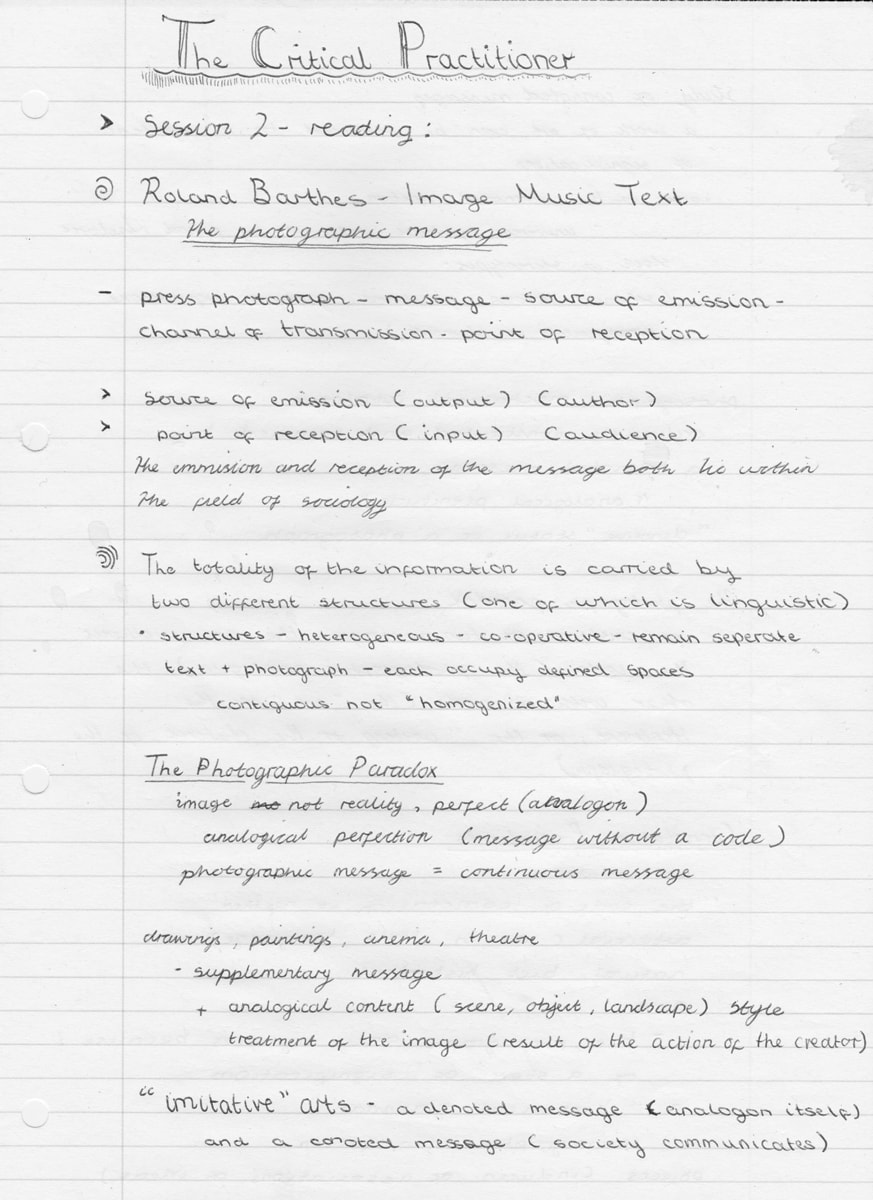 The Critical Practitioner
Session 2 - reading:
Roland Barthes - Image Music Text
The photographic message
- press photograph - message - source of emission -
channel of transmission - point of reception
> source of emission (output) (author)
> point of reception (input) (audience)
The emmision and reception of the message both lie within
The field of sociology
The totality of the information is carried by
two different structures (one of which is linguistic)
• structures - heterogeneous - co-operative - remain seperate
text + photograph - each occupy defined spaces
contiguous not "homogenized"
The Photographic Paradox
image not reality, perfect (analogon)
analogical perfection (message without a code)
photographic message = continuous message
drawings, paintings, cinema, theatre
- supplementary message
+ analogical content (scene, object, landscape) style
treatment of the image (result of the action of the creator)
"imitative" arts - a denoted message (analogon itself)
and a conoted message (society communicates)